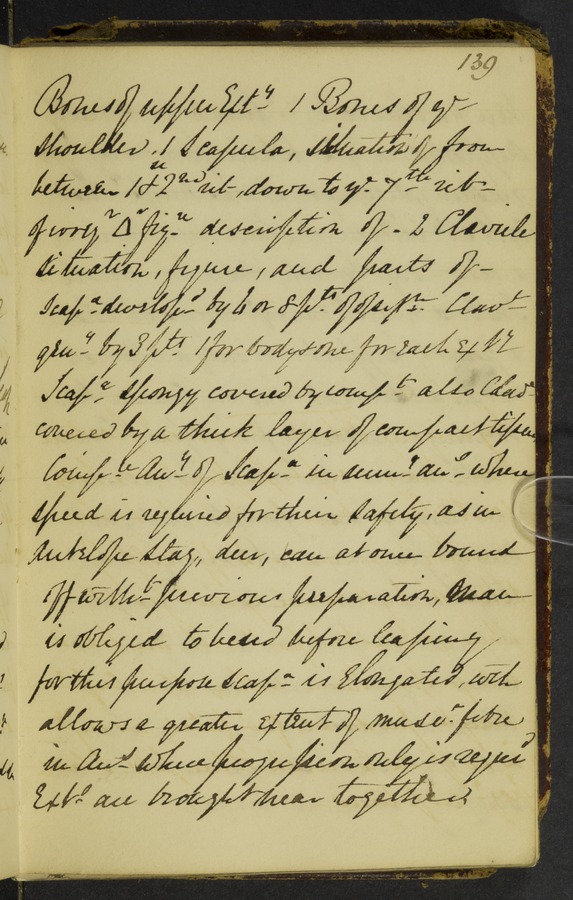 139
Bones of upper Exty 1 Bones of ye
shoulder. 1 Scapula, situation of from
between 1st & 2nd rib, down to ye 7th rib
description of - 2 Clavicle
situation, figure, and parts of -
Scapa develop by 6 or 8 pts Clavl
by 3 pts 1 for body & one for each Exty
Scapa spongy covered by compt also Clavl
covered by a thick layer of compact tissue
Compve Any of Scapa in ans where
speed is required for their safety, as in
Antelope Stag, deer, can at once bound
off witht previous preparation, Man
is obliged to bend before leaping
for this purpose scapa is Elongated, wch
allows a greater extent of muscr fibre
in Ans where progression only is requird
Exts are brought near together.